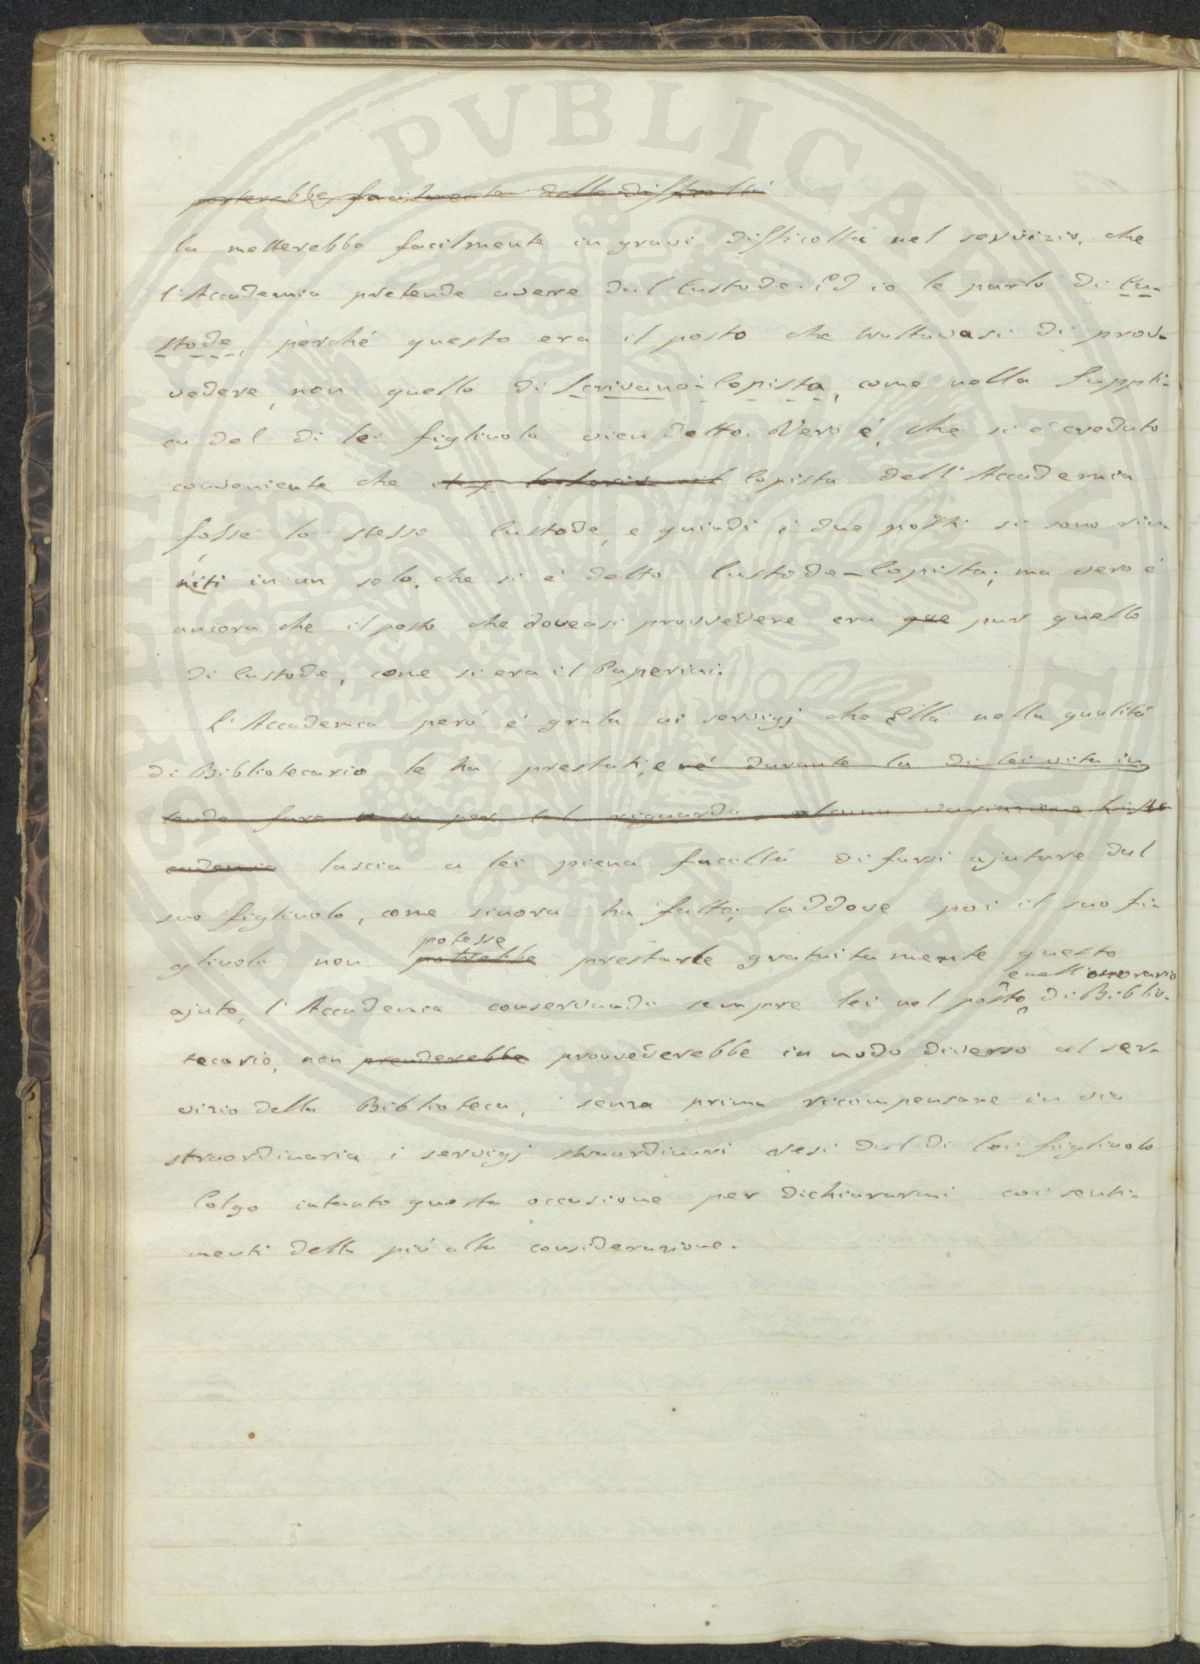 porterebbe facilmente delle difficoltà
la metterebbe facilmente in gravi difficoltà nel servizio, che
l'Accademia pretende avere dal Custode. Ed io le parlo di Cu-
stode, perché questo era il posto che trattavasi di prov-
vedere, non quello di Scrivano-Copista, come nella Suppli-
ca del di lei figliuolo vien detto. Vero è, che si è creduto
conveniente che copista dell'Accademia
fosse lo stesso Custode, e quindi i due posti si sono riu-
niti in un solo, che si è detto Custode-Copista; ma vero è
ancora che il posto che doveasi provvedere era que pur quello
di Custode, come si era il Paperini.
L'Accademia però è grata ai servigj che Ella nella qualità
di Bibliotecario le ha prestati, e né durante la di lei vita in
tende fare per tal riguardo alcuna variazione L'Ac
cademia lascia a lei piena facoltà di farsi ajutare dal
suo figliuolo, come sinora ha fatto; laddove poi il suo fi-
potesse
gliuolo non potrebbe prestarle gratuitamente questo
e nell'onorario
ajuto, l'Accademia conservando sempre lei nel posto di Biblio-
tecario, non prenderebbe provvederebbe in modo diverso al ser-
vizio della Biblioteca, senza prima ricompensare in via
straordinaria i servigj straordinari resi dal di lei figliuolo
Colgo intanto questa occasione per dichiararmi coi senti-
menti della più alta considerazione.